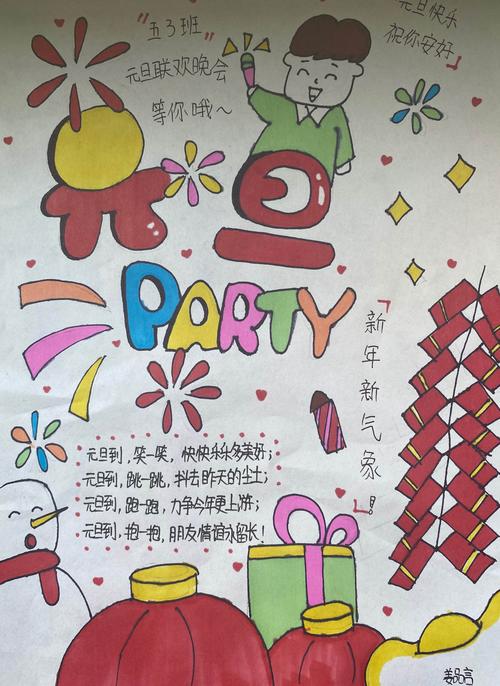 五3班
元旦联欢晚会
等你哦～
元旦快乐
祝你安好
元旦
PARTY
新年新气象！
元旦到，笑一笑，快快乐乐多美好；
元旦到，跳一跳，抖去昨天的尘土；
元旦到，跑一跑，力争今年更上游；
元旦到，抱一抱，朋友情谊永留长！